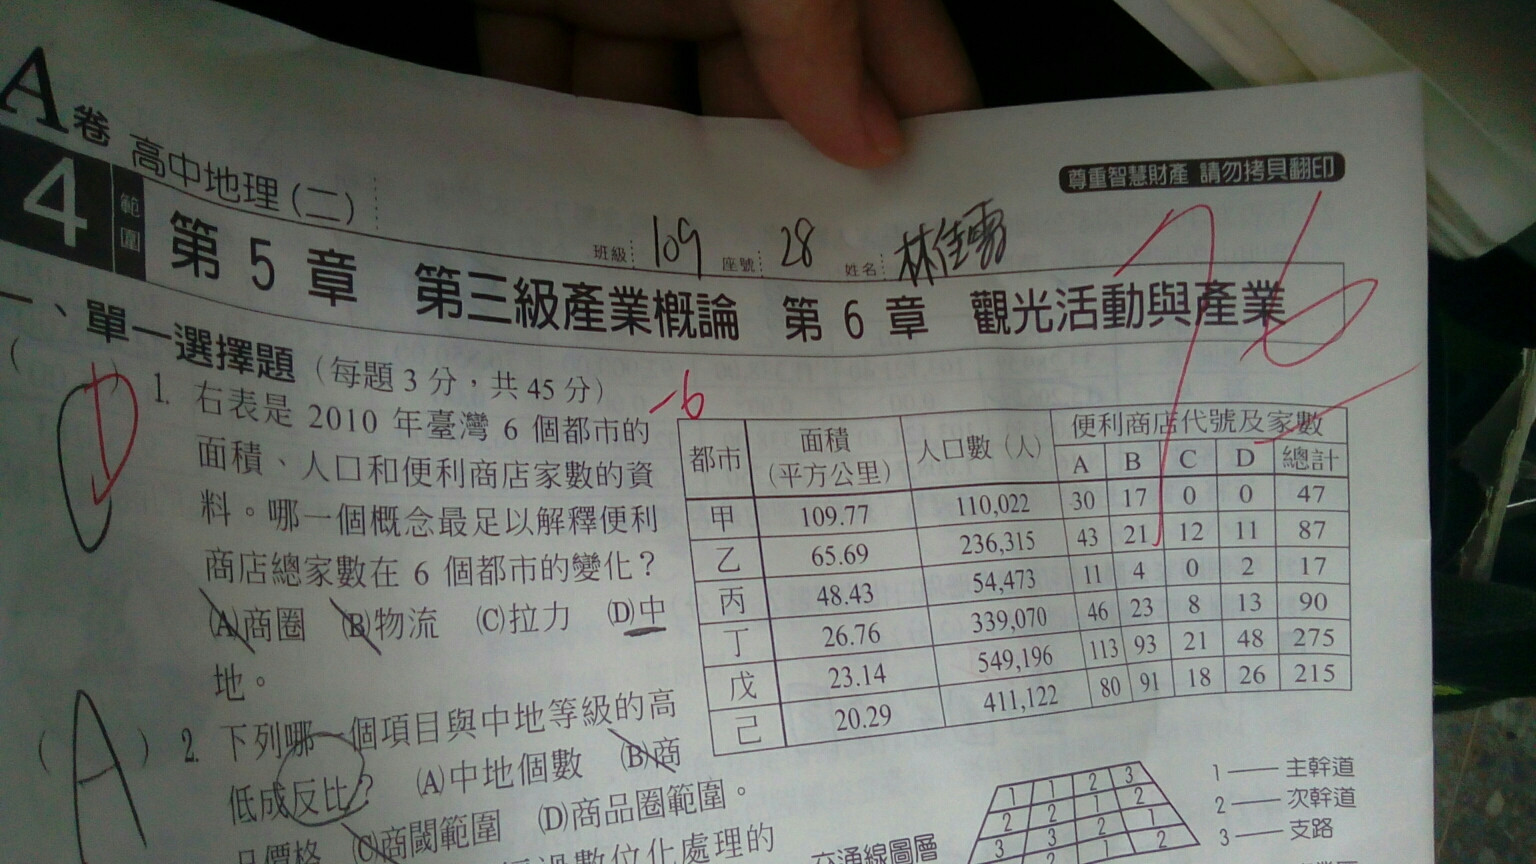 A卷 高中地理(二)
尊重智慧財產 請勿拷貝翻印
4 範圍
班級: 109 座號: 28 姓名: 林佳霈
第 5 章 第三級產業概論 第 6 章 觀光活動與產業
76
一、單一選擇題(每題3分,共45分)
-6
( D ) 1. 右表是 2010 年臺灣 6 個都市的
面積、人口和便利商店家數的資
料。哪一個概念最足以解釋便利
商店總家數在 6 個都市的變化?
(A)商圈 (B)物流 (C)拉力 (D)中
地。
都市 面積(平方公里) 人口數(人) 便利商店代號及家數
A B C D 總計
甲 109.77 110,022 30 17 0 0 47
乙 65.69 236,315 43 21 12 11 87
丙 48.43 54,473 11 4 0 2 17
丁 26.76 339,070 46 23 8 13 90
戊 23.14 549,196 113 93 21 48 275
己 20.29 411,122 80 91 18 26 215
( A ) 2. 下列哪一個項目與中地等級的高
低成反比? (A)中地個數 (B)商
品價格 (C)商閾範圍 (D)商品圈範圍。
過數位化處理的
交通線圖層
1 1 2 3
2 2 1 2
3 3 2 1
2 1 2
1 — 主幹道
2 — 次幹道
3 — 支路